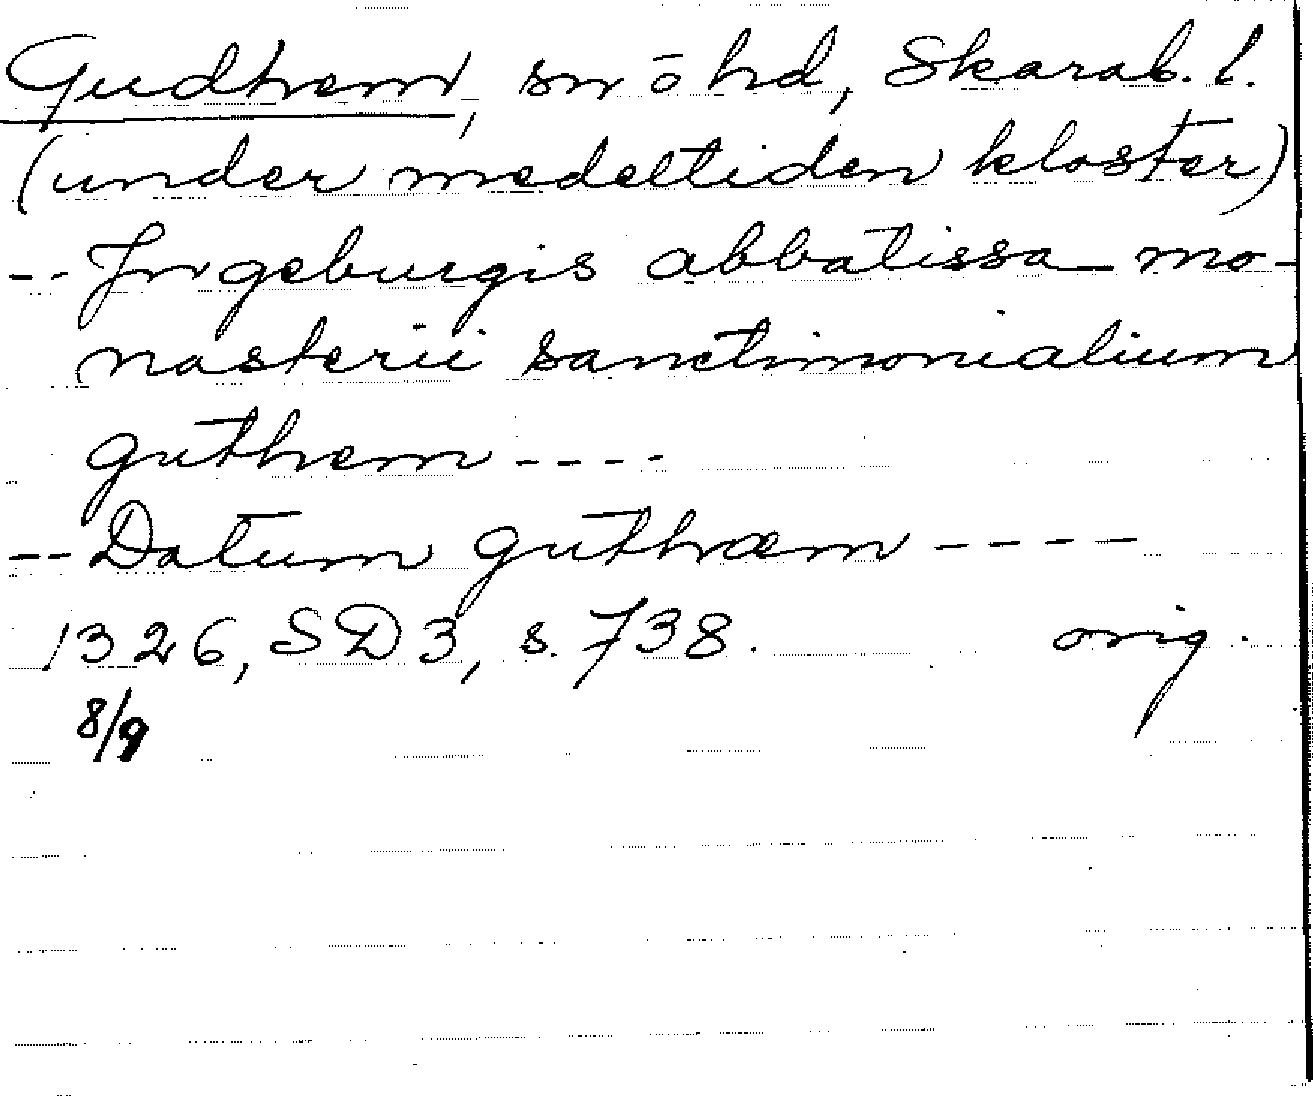 Gudhem, sn o hd, Skarab. l.
(under medeltiden kloster)
-- Jngeburgis abbatissa mo-
nasterii sanctimonialium
guthem ----
-- Datum guthæm ----
1326, SD 3, s. 738. orig.
8/9